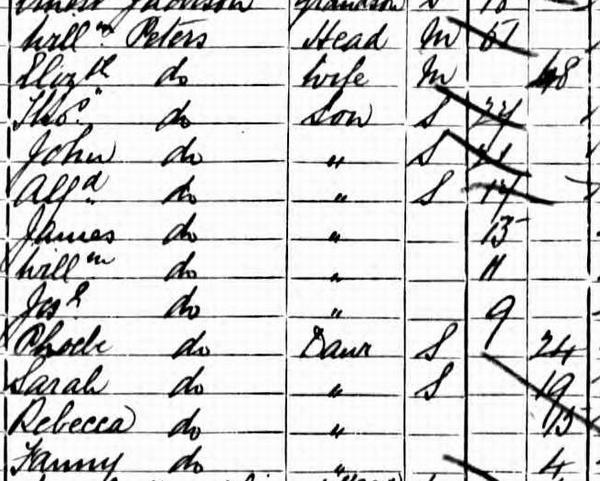 Grandson S
Will^m Peters Head M 51
Eliz^th do Wife M 48
Tho^s do Son S 27
John do " S
Alf^d do " S 17
James do " 15
Will^m do " 11
Jos^h do " 9
Phoebe do Daur S 24
Sarah do " S 19
Rebecca do " 13
Fanny do " 4